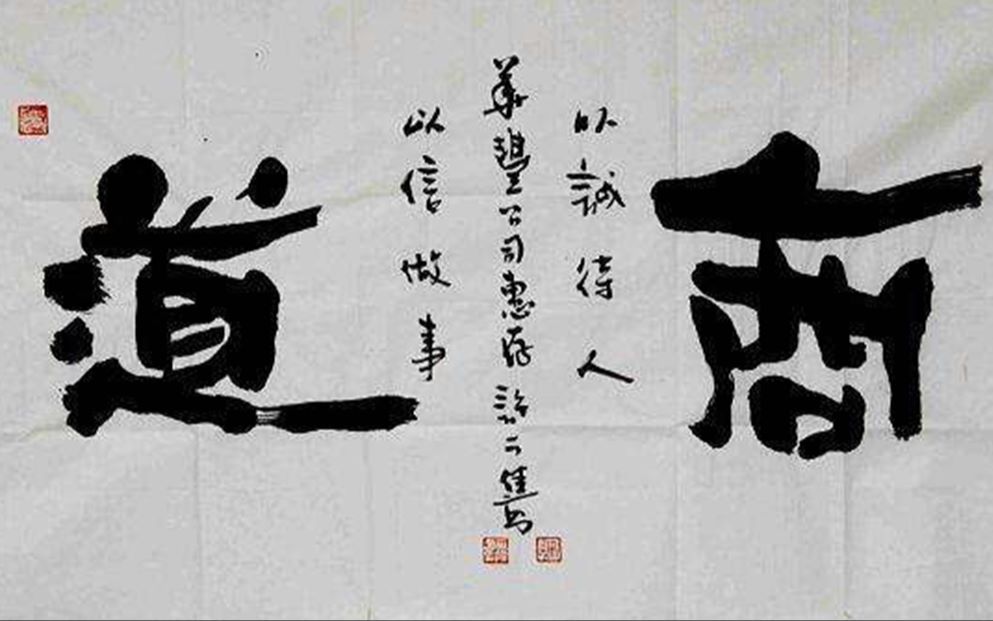 商道
以誠待人
華豐公司惠存
以信做事